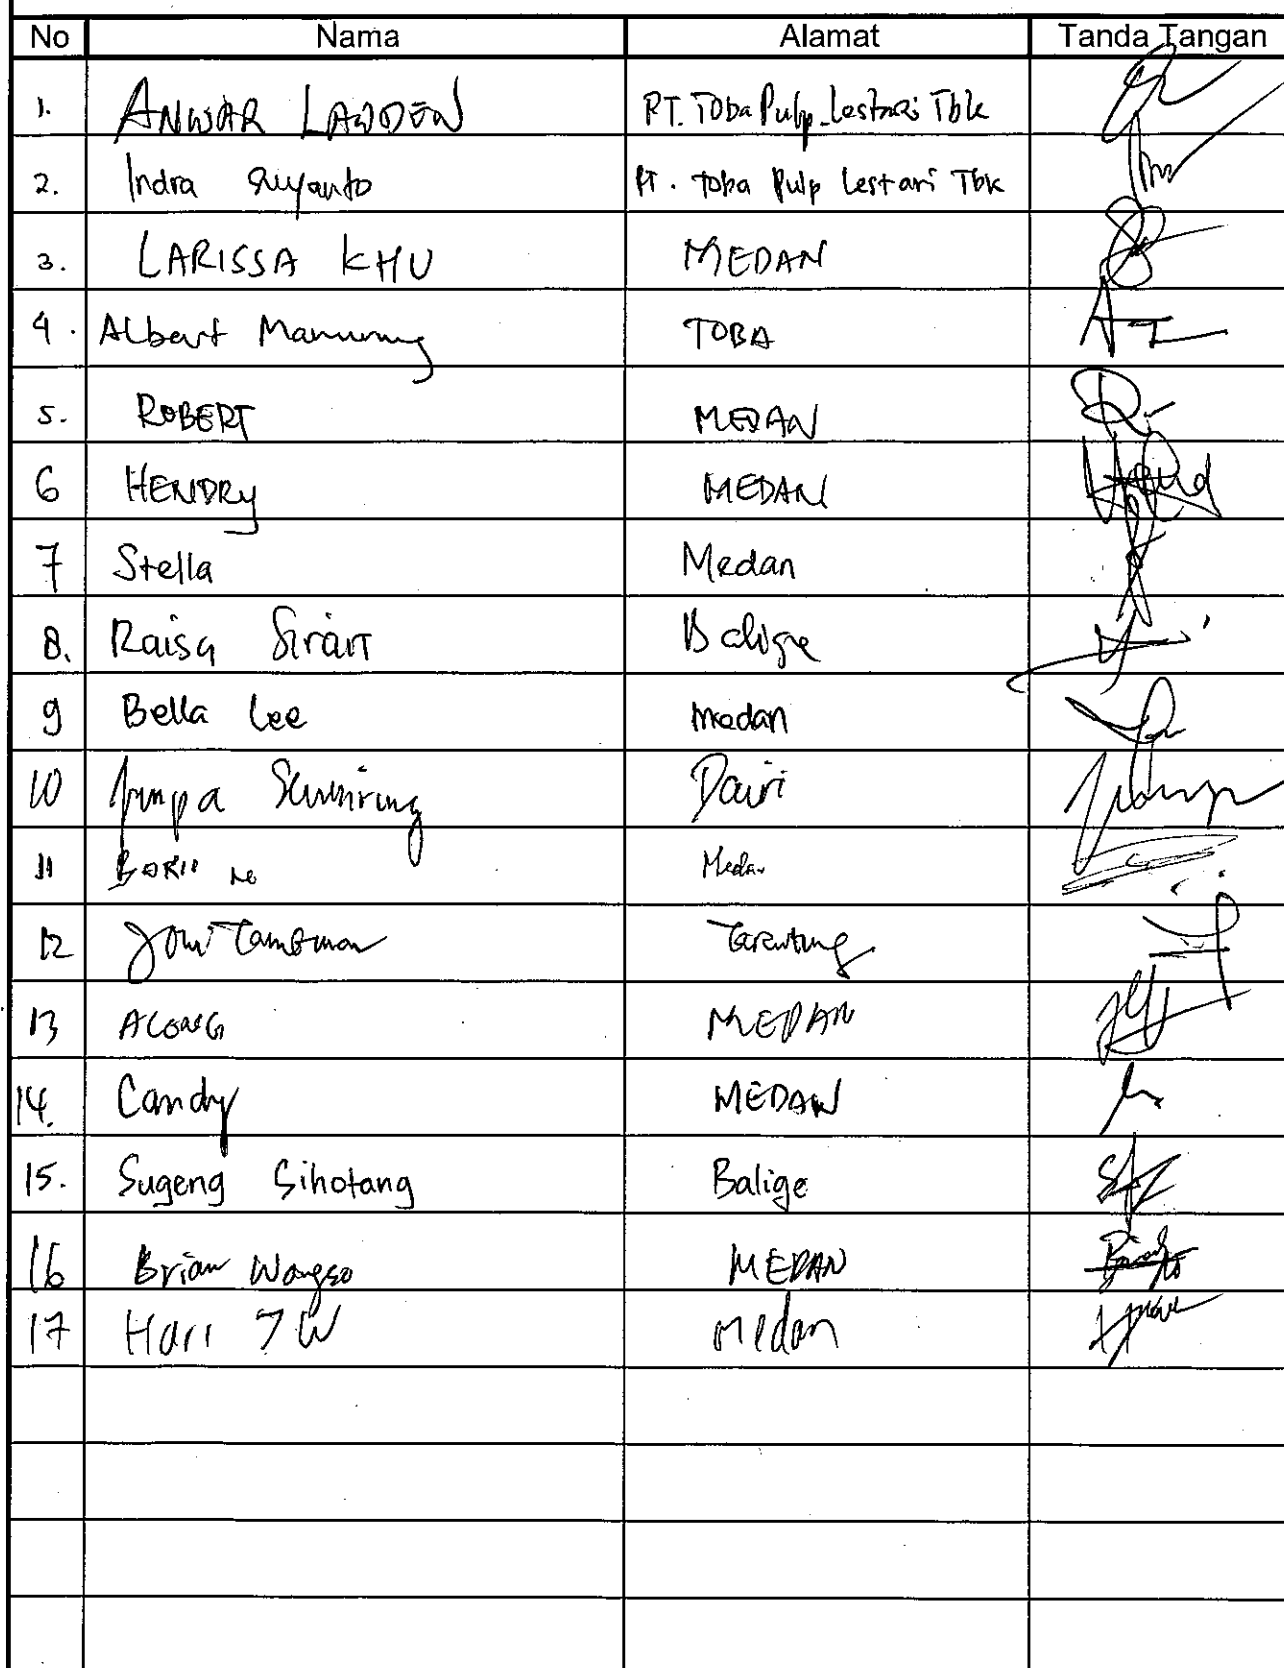 No Nama Alamat Tanda Tangan
1. ANWAR LAWDEN PT. Toba Pulp Lestari Tbk
2. Indra Suyanto PT. Toba Pulp Lestari Tbk
3. LARISSA KHU MEDAN
4. Albert Manurung TOBA
5. ROBERT MEDAN
6 HENDRY MEDAN
7 Stella Medan
8. Raisa Sirait Balige
9 Bella Lee medan
10 Dairi
11 Medan
12 Joni Tambunan Tarutung
13 ACONG MEDAN
14. Candy MEDAN
15. Sugeng Sihotang Balige
16 Brian Wongso MEDAN
17 Hari TW Medan